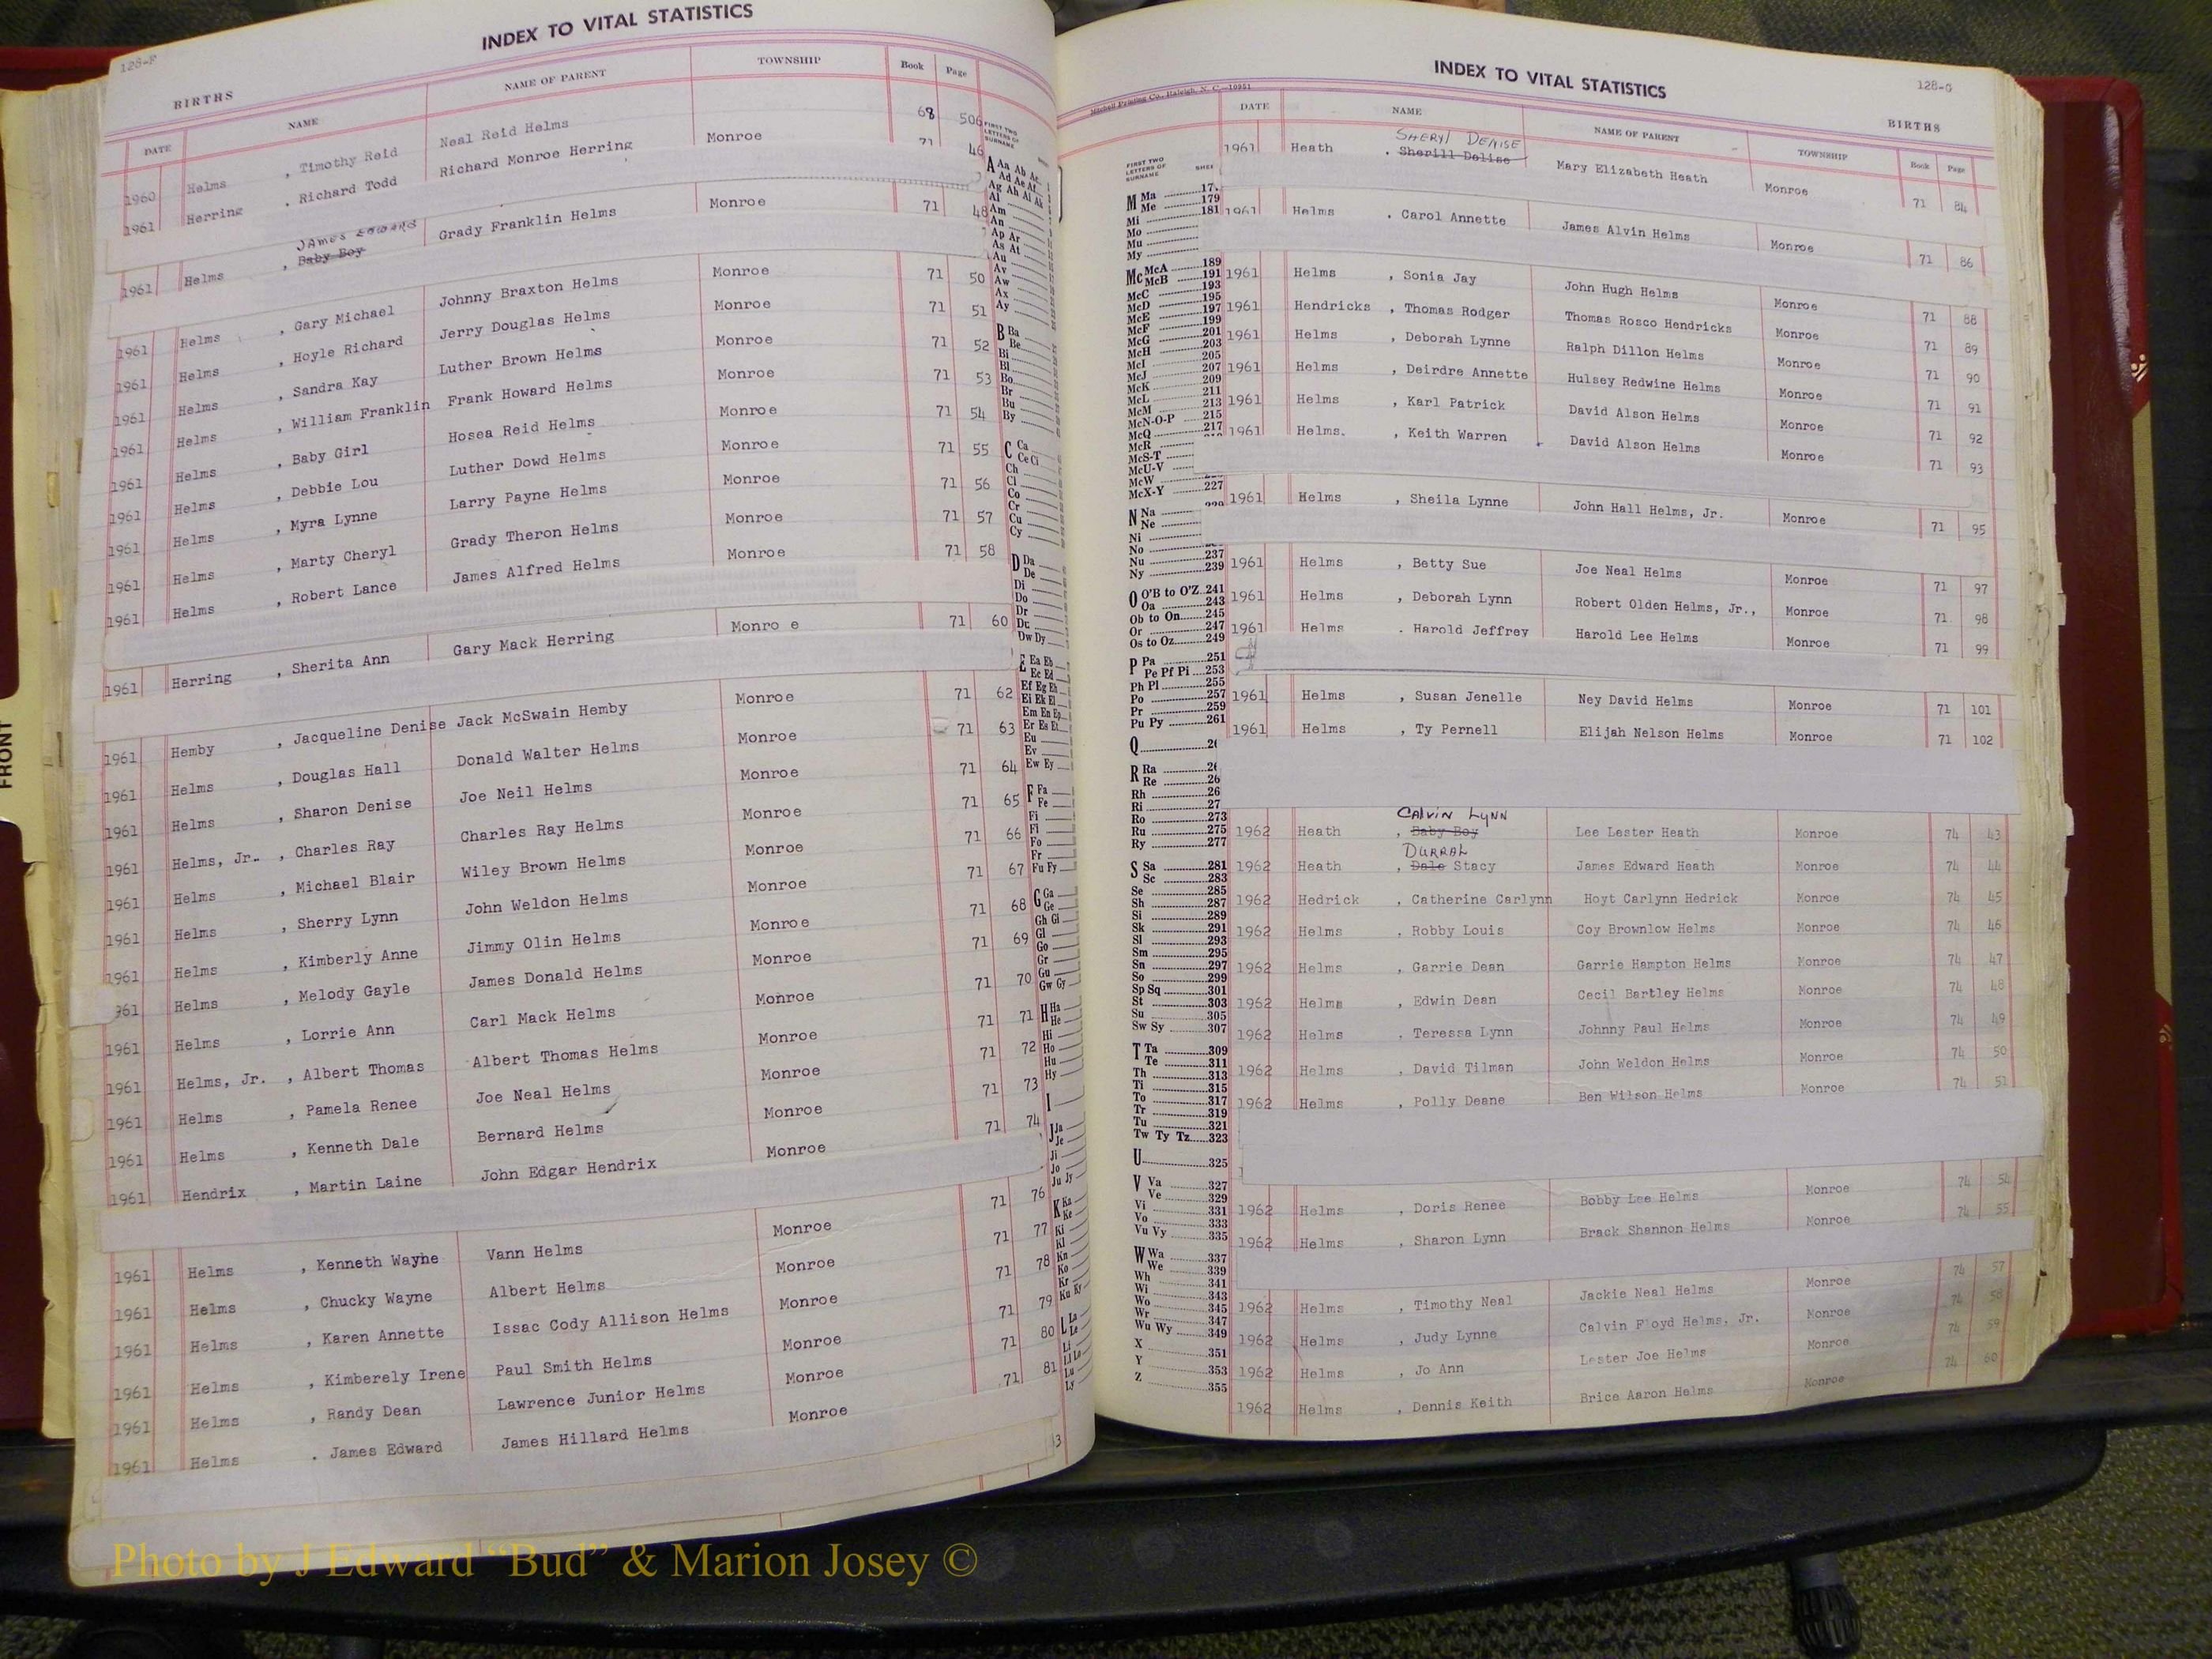 128-F
INDEX TO VITAL STATISTICS
BIRTHS
DATE NAME NAME OF PARENT TOWNSHIP Book Page
1960 Helms , Timothy Reid Neal Reid Helms 68 506
1961 Herring . Richard Todd Richard Monroe Herring Monroe 71 46
JAMES EDWARD
1961 Helms , Baby Boy Grady Franklin Helms Monroe 71 48
1961 Helms , Gary Michael Johnny Braxton Helms Monroe 71 50
1961 Helms , Hoyle Richard Jerry Douglas Helms Monroe 71 51
1961 Helms , Sandra Kay Luther Brown Helms Monroe 71 52
1961 Helms , William Franklin Frank Howard Helms Monroe 71 53
1961 Helms , Baby Girl Hosea Reid Helms Monroe 71 54
1961 Helms , Debbie Lou Luther Dowd Helms Monroe 71 55
1961 Helms , Myra Lynne Larry Payne Helms Monroe 71 56
1961 Helms , Marty Cheryl Grady Theron Helms Monroe 71 57
1961 Helms , Robert Lance James Alfred Helms Monroe 71 58
1961 Herring , Sherita Ann Gary Mack Herring Monro e 71 60
1961 Hemby , Jacqueline Denise Jack McSwain Hemby Monroe 71 62
1961 Helms , Douglas Hall Donald Walter Helms Monroe 71 63
1961 Helms , Sharon Denise Joe Neil Helms Monroe 71 64
1961 Helms, Jr. , Charles Ray Charles Ray Helms Monroe 71 65
1961 Helms , Michael Blair Wiley Brown Helms Monroe 71 66
1961 Helms , Sherry Lynn John Weldon Helms Monroe 71 67
1961 Helms , Kimberly Anne Jimmy Olin Helms Monroe 71 68
961 Helms , Melody Gayle James Donald Helms Monroe 71 69
1961 Helms , Lorrie Ann Carl Mack Helms Monroe 71 70
1961 Helms, Jr. , Albert Thomas Albert Thomas Helms Monroe 71 71
1961 Helms , Pamela Renee Joe Neal Helms Monroe 71 72
1961 Helms , Kenneth Dale Bernard Helms Monroe 71 73
1961 Hendrix , Martin Laine John Edgar Hendrix Monroe 71 74
1961 Helms , Kenneth Wayne Vann Helms Monroe 71 76
1961 Helms , Chucky Wayne Albert Helms Monroe 71 77
1961 Helms , Karen Annette Issac Cody Allison Helms Monroe 71 78
1961 Helms , Kimberely Irene Paul Smith Helms Monroe 71 79
1961 Helms , Randy Dean Lawrence Junior Helms Monroe 71 80
1961 Helms . James Edward James Hillard Helms Monroe 71 81
3
FIRST TWO
LETTERS OF
SURNAME
A Aa Ab Ac
Ad Ae Af
Ag Ah Ai Ak
Al
Am
An
Ap Ar
As At
Au
Av
Aw
Ax
Ay
B Ba
Be
Bi
Bl
Bo
Br
Bu
By
C Ca
Ce Ci
Ch
Cl
Co
Cr
Cu
Cy
D Da
De
Di
Do
Dr
Du
Dw Dy
E Ea Eb
Ec Ed
Ef Eg Eh
Ei Ek El
Em En Ep
Er Es Et
Eu
Ev
Ew Ey
F Fa
Fe
Fi
Fl
Fo
Fr
Fu Fy
G Ga
Ge
Gh Gi
Gl
Go
Gr
Gu
Gw Gy
H Ha
He
Hi
Ho
Hu
Hy
I
J Ja
Je
Ji
Jo
Ju Jy
K Ka
Ke
Ki
Kl
Kn
Ko
Kr
Ku Ky
L La
Le
Li
Ll Lo
Lu
Ly
FRONT
Mitchell Printing Co., Raleigh, N. C.—10951
INDEX TO VITAL STATISTICS
128-G
BIRTHS
DATE NAME NAME OF PARENT TOWNSHIP Book Page
SHERYl DENISE
1961 Heath . Sherill Delise Mary Elizabeth Heath Monroe 71 84
1961 Helms . Carol Annette James Alvin Helms Monroe 71 86
1961 Helms , Sonia Jay John Hugh Helms Monroe 71 88
1961 Hendricks , Thomas Rodger Thomas Rosco Hendricks Monroe 71 89
1961 Helms , Deborah Lynne Ralph Dillon Helms Monroe 71 90
1961 Helms , Deirdre Annette Hulsey Redwine Helms Monroe 71 91
1961 Helms , Karl Patrick David Alson Helms Monroe 71 92
1961 Helms. , Keith Warren David Alson Helms Monroe 71 93
1961 Helms , Sheila Lynne John Hall Helms, Jr. Monroe 71 95
1961 Helms , Betty Sue Joe Neal Helms Monroe 71 97
1961 Helms , Deborah Lynn Robert Olden Helms, Jr., Monroe 71 98
1961 Helms . Harold Jeffrey Harold Lee Helms Monroe 71 99
1961 Helms , Susan Jenelle Ney David Helms Monroe 71 101
1961 Helms , Ty Pernell Elijah Nelson Helms Monroe 71 102
CAlvin LyNN
1962 Heath , Baby Boy Lee Lester Heath Monroe 74 43
DURRAL
1962 Heath , Dale Stacy James Edward Heath Monroe 74 44
1962 Hedrick , Catherine Carlynn Hoyt Carlynn Hedrick Monroe 74 45
1962 Helms , Robby Louis Coy Brownlow Helms Monroe 74 46
1962 Helms , Garrie Dean Garrie Hampton Helms Monroe 74 47
1962 Helms , Edwin Dean Cecil Bartley Helms Monroe 74 48
1962 Helms , Teressa Lynn Johnny Paul Helms Monroe 74 49
1962 Helms , David Tilman John Weldon Helms Monroe 74 50
1962 Helms , Polly Deane Ben Wilson Helms Monroe 74 51
1962 Helms , Doris Renee Bobby Lee Helms Monroe 74 54
1962 Helms , Sharon Lynn Brack Shannon Helms Monroe 74 55
1962 Helms , Timothy Neal Jackie Neal Helms Monroe 74 57
1962 Helms , Judy Lynne Calvin Floyd Helms, Jr. Monroe 74 58
1962 Helms , Jo Ann Lester Joe Helms Monroe 74 59
1962 Helms , Dennis Keith Brice Aaron Helms Monroe 74 60
FIRST TWO
LETTERS OF
SURNAME
M Ma 17
Me 179
Mi 181
Mo
Mu
My
Mc McA 189
McB 191
McC 193
McD 195
McE 197
McF 199
McG 201
McH 203
McI 205
McJ 207
McK 209
McL 211
McM 213
McN-O-P 215
McQ 217
McR
McS-T
McU-V
McW
McX-Y 227
N Na
Ne
Ni
No
Nu 237
Ny 239
O O'B to O'Z 241
Oa 243
Ob to On 245
Or 247
Os to Oz 249
P Pa 251
Pe Pf Pi 253
Ph Pl 255
Po 257
Pr 259
Pu Py 261
Q 26
R Ra 26
Re 26
Rh 26
Ri 27
Ro 273
Ru 275
Ry 277
S Sa 281
Sc 283
Se 285
Sh 287
Si 289
Sk 291
Sl 293
Sm 295
Sn 297
So 299
Sp Sq 301
St 303
Su 305
Sw Sy 307
T Ta 309
Te 311
Th 313
Ti 315
To 317
Tr 319
Tu 321
Tw Ty Tz 323
U 325
V Va 327
Ve 329
Vi 331
Vo 333
Vu Vy 335
W Wa 337
We 339
Wh 341
Wi 343
Wo 345
Wr 347
Wu Wy 349
X 351
Y 353
Z 355
Photo by J Edward “Bud” & Marion Josey ©